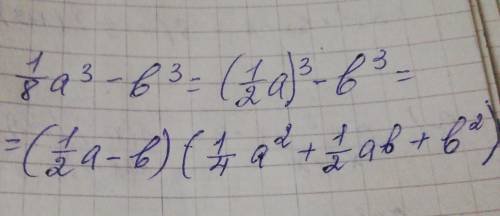 1/8 a³ - b³ = (1/2 a)³ - b³ =
= (1/2 a - b) (1/4 a² + 1/2 ab + b²)